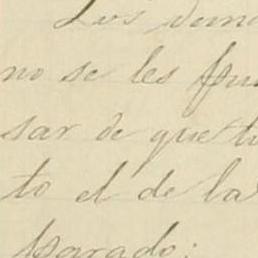 Los dem
no se les pu
sar de que tu
to el de la
parado;